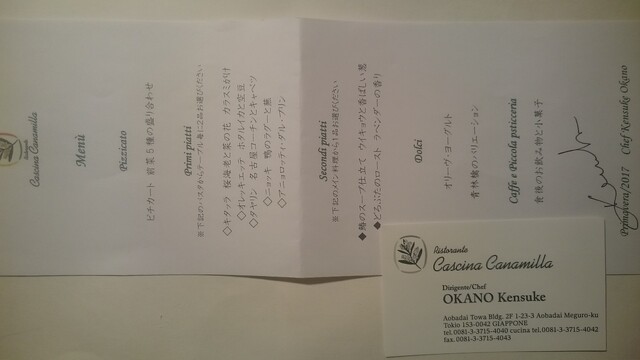 Ristorante
Cascina Canamilla
Menù
Pizzicato
ピチカート 前菜5種の盛り合わせ
Primi piatti
※下記のパスタからテーブル毎に2品お選びください
◇キタッラ 桜海老と菜の花 カラスミがけ
◇オレッキエッテ ホタルイカと空豆
◇タヤリン 名古屋コーチンとキャベツ
◇ニョッキ 鴨のラグーと葱
◇アニョロッティ・ダル・プリン
Secondi piatti
※下記のメイン料理から1品お選びください
◆鰆のスープ仕立て ウイキョウと香ばしい黒
◆どろぶたのロースト ラベンダーの香り
Dolci
オリーヴ、ヨーグルト
青林檎のバリエーション
Caffè e Piccola pasticceria
食後のお飲み物と小菓子
Primavera/2017 Chef Kensuke Okano
Ristorante
Cascina Canamilla
Dirigente/Chef
OKANO Kensuke
Aobadai Towa Bldg. 2F 1-23-3 Aobadai Meguro-ku
Tokio 153-0042 GIAPPONE
tel.0081-3-3715-4040 cucina tel.0081-3-3715-4042
fax.0081-3-3715-4043